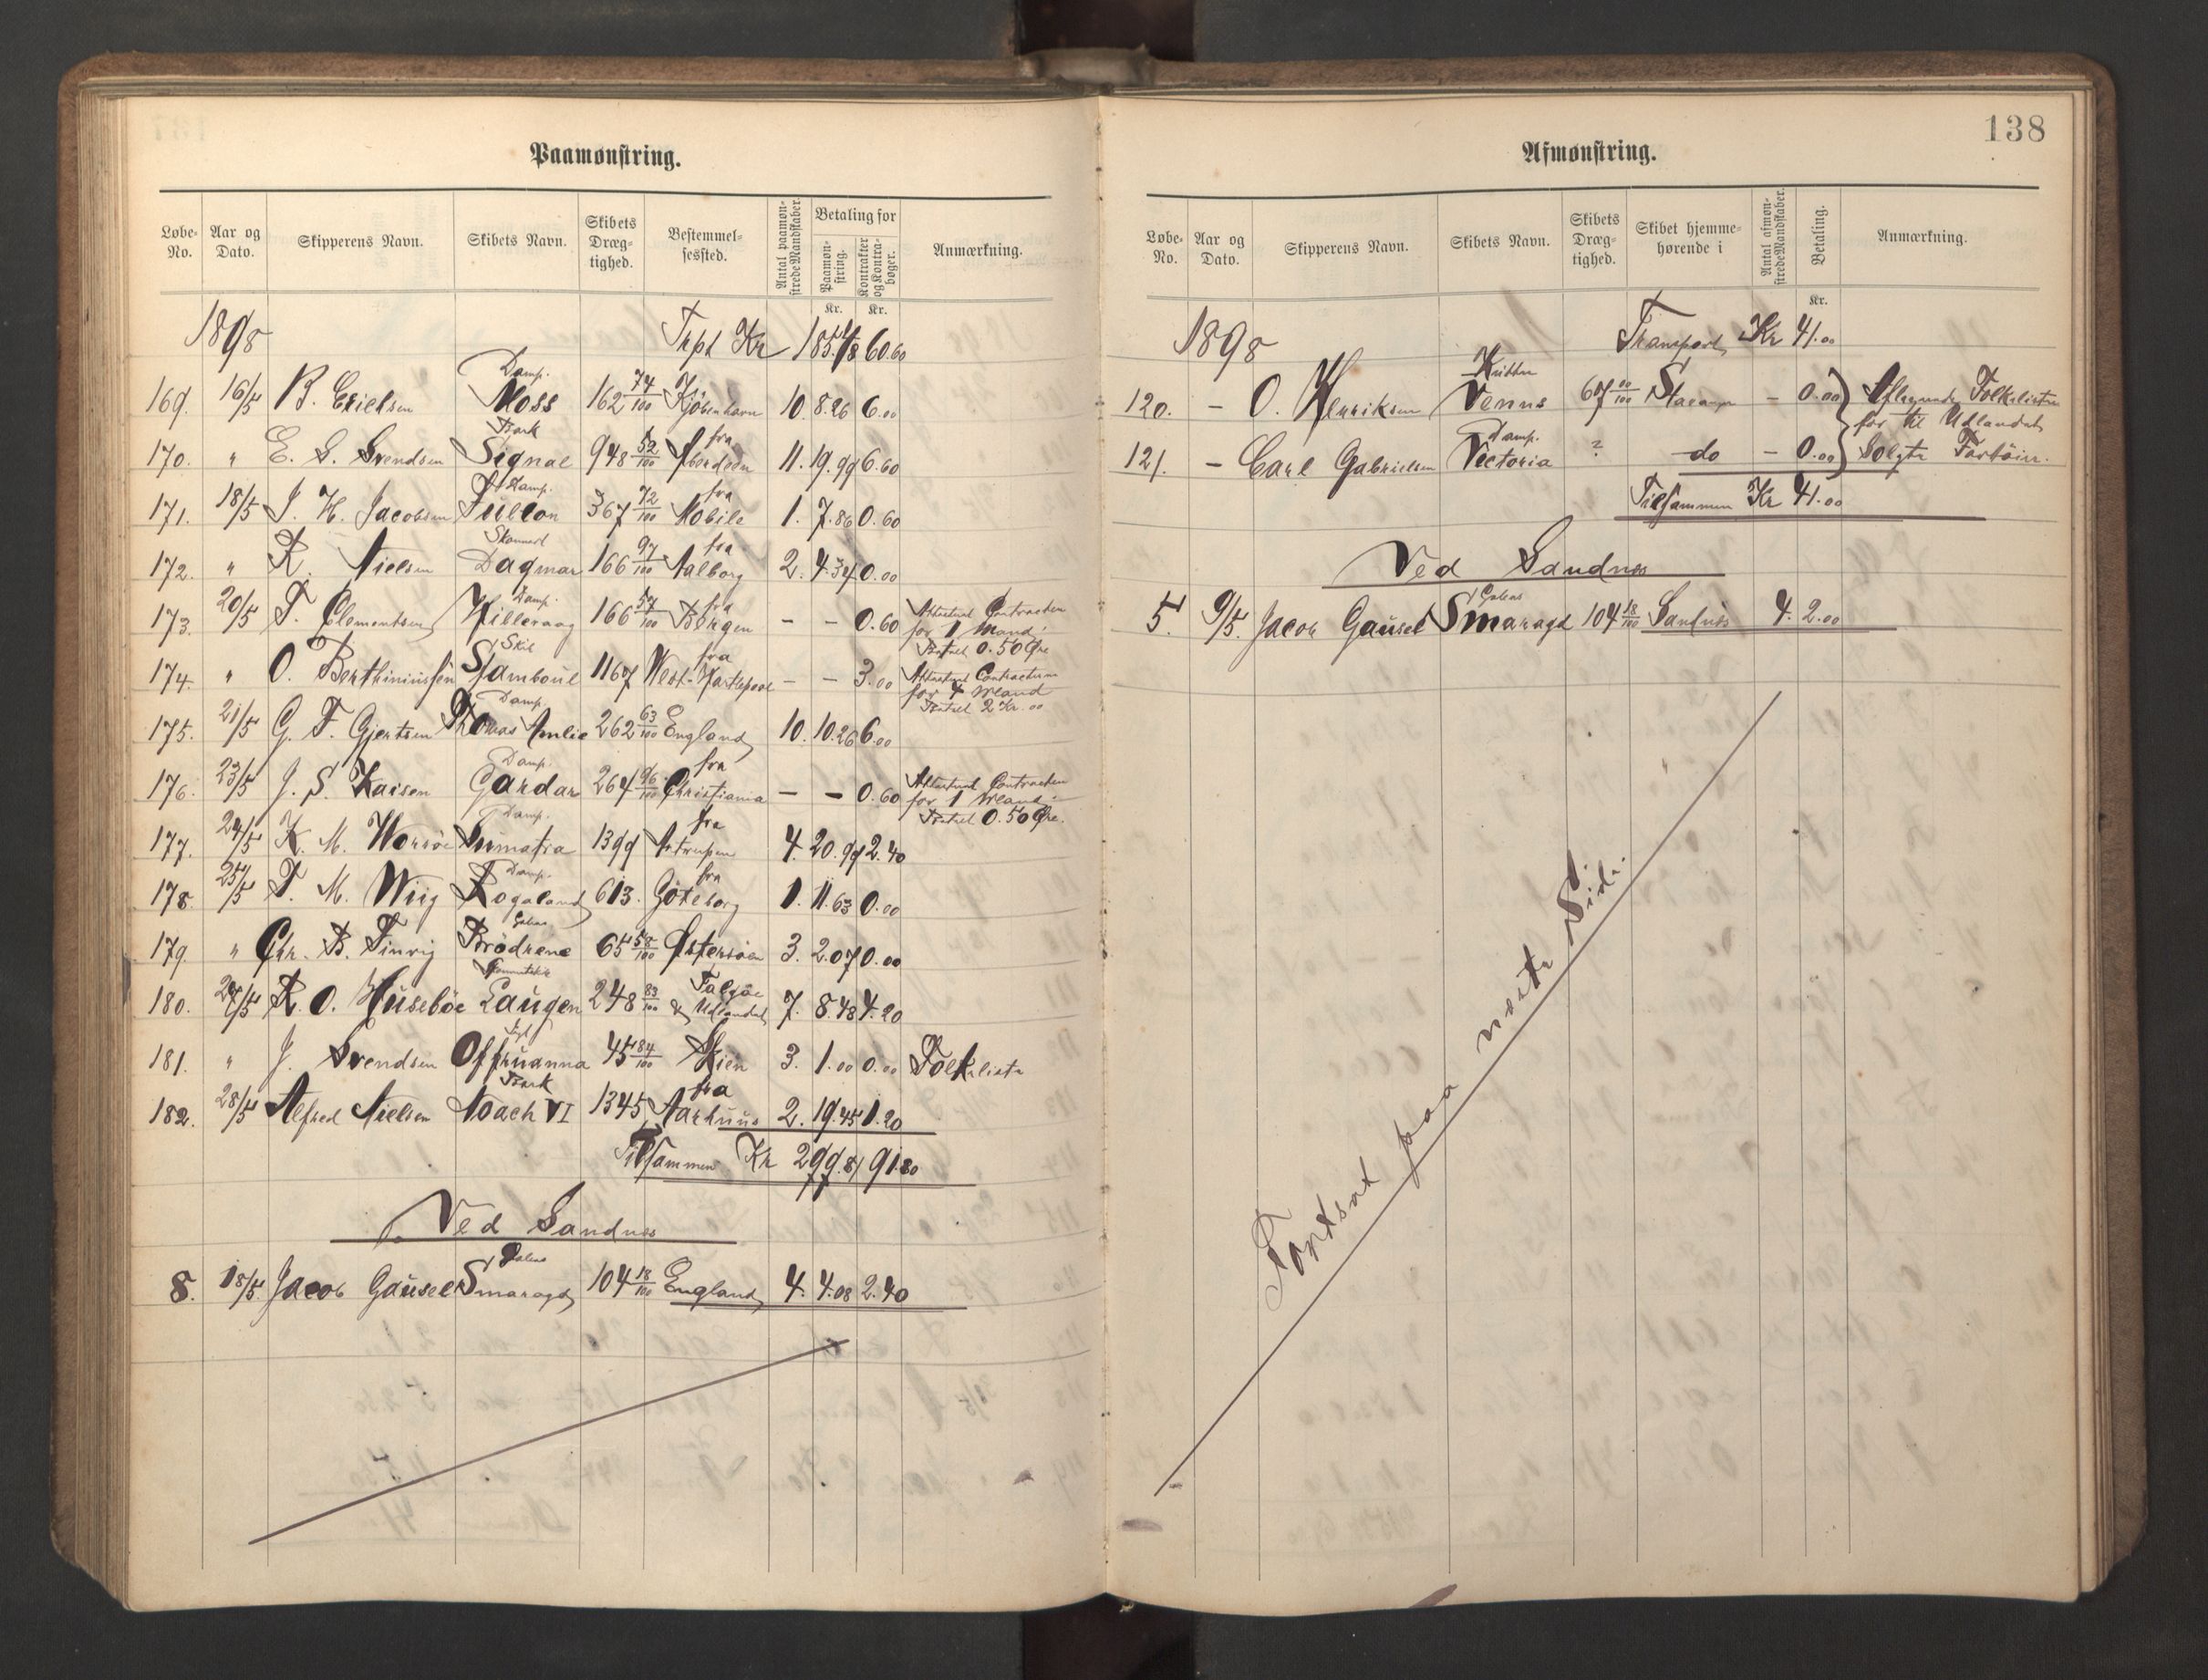 Paamønstring.
Løbe-No. Aar og Dato. Skipperens Navn. Skibets Navn. Skibets Dræg-tighed. Bestemmel-sessted. Antal paamøn-strede Mandskaber. Betaling for Paamøn-string. Kontrakter og Kontra-bøger. Anmærkning.
Kr. Kr.
1898 Trpt Kr 60.60
169. 16/5 B. Erielsen Damp. Moss 162 74/100 Kjöbenhavn 10. 8.26 6.00
170. " E. S. Svendsen Bark Signal 948 52/100 fra Aberdeen 11. 19.99 6.60
171. 18/5 J. H. Jacobsen Damp. 367 72/100 fra Mobile 1. 7.86 0.60
172. " R. Nielsen Skonnert Dagmar 166 97/100 fra Aalborg 2. 4.34 0.00
173. 20/5 T. Clementsen Damp. Hilleraag 166 57/100 fra Bergen - - 0.60 Contracten for 1 Mand: 0.50 Øre
174. " O. Berthiniussen Skib Stamboul 1167 fra West-Hartlepool - - 3.00 for 4 Mand 2 Kr. 00
175. 21/5 G. T. Gjertsen Damp. Thomas Amlie 262 63/100 England 10. 10.26 6.00
176. 23/5 J. S. Kaisen Damp. Gardar 264 96/100 fra Christiania - - 0.60 Contracten for 1 Mand: 0.50 Øre.
177. 24/5 K. M. Worsöe Damp. Sumatra 1399 fra 4. 20.99 2.40
178. 25/5 T. M. Wiig Damp. Rogaland 613. fra Göteborg 1. 11.63 0.00
179. " Chr. B. Tinvig Galeas Brödrene 65 58/100 Östersöen 3. 2.07 0.00
180. 27/5 R. O. Huseböe Laugen 248 83/100 & Udlandet 7. 8.48 4.20
181. " J. Svendsen Jagt Offruanna 45 84/100 Skien 3. 1.00 0.00 Folkeliste
182. 28/5 Alfred Nielsen Bark Noach VI 1345 fra Aarhuus 2. 19.45 1.20
Tilsammen Kr 299.81 91.80
Ved Sandnes
8. 18/5. Jacob Gausel Galeas Smaragd 104 18/100 England 4. 4.08 2.40
138
Afmønstring.
Løbe-No. Aar og Dato. Skipperens Navn. Skibets Navn. Skibets Dræg-tighed. Skibet hjemme-hørende i Antal afmøn-strede Mandskaber. Betaling. Anmærkning.
Kr.
1898 Transport Kr 41.00
120. - O. Henriksen Kutter Venus 67 00/100 Stavanger - 0.00 Folkelister
for til Udlandet
121. - Carl Gabrielsen Damp. Victoria ? do - 0.00 Solgte Fartöier.
Tilsammen Kr 41.00
Ved Sandnes
5. 9/5. Jacob Gausel Galeas Smaragd 104 18/100 Sandnes 4. 2.00
Fortsat paa næste Side.